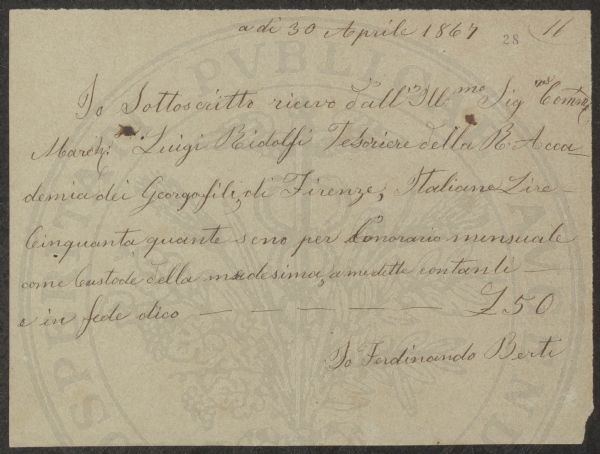 a dì 30 Aprile 1867
28 16
Io Sottoscritto ricevo dall'Ill.mo Sig.
March: Luigi Ridolfi Tesoriere della R. Acca
demia dei Georgofili, di Firenze, Italiane Lire
Cinquanta quante seno per Lonorario mensuale
come Custode della medesima, a me dette contanti
e in fede dico — — — — — — £ 50
Io Ferdinando Berti
PVBLICAE
PROSPERITATI